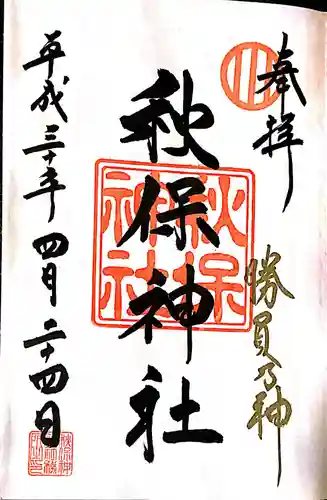 奉拝
勝負の神
秋保神社
秋保
神社
平成三十年四月二十四日